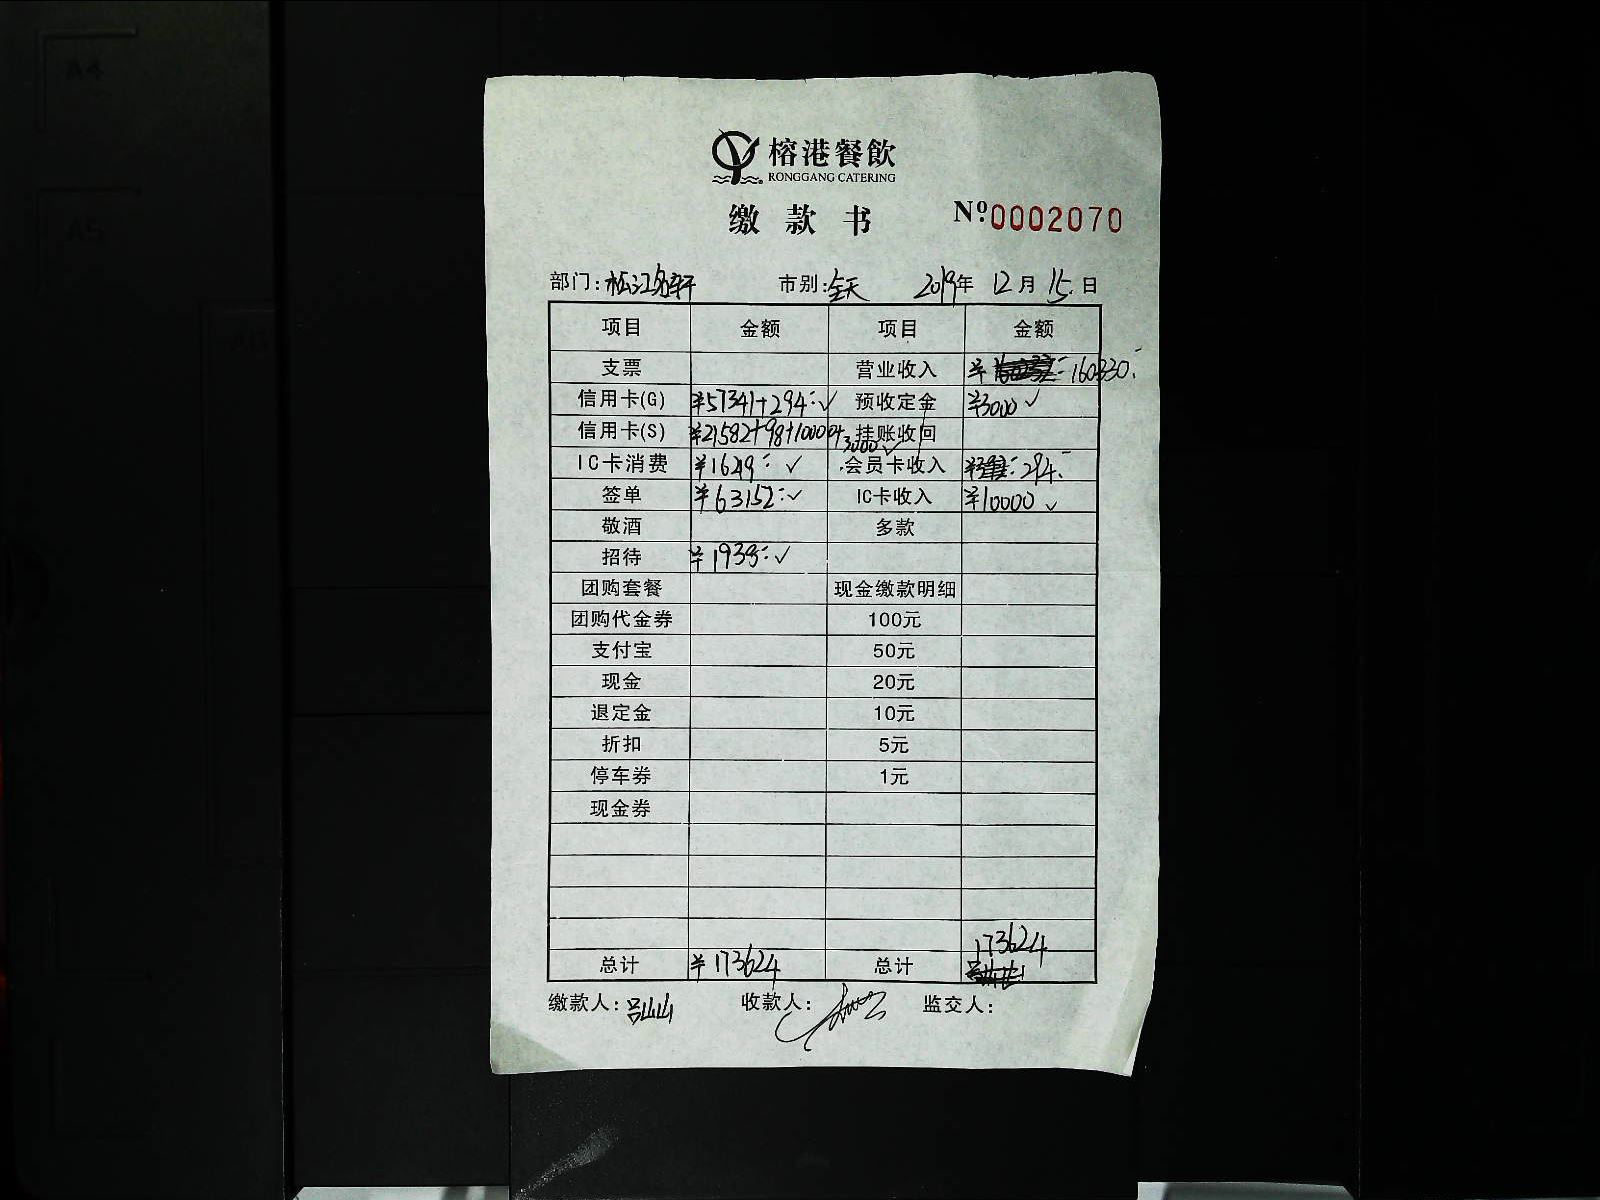 A4
A5
A6
榕港餐飲
RONGGANG CATERING
缴款书 Nº:0002070
部门:松江名轩 市别:全天 2019年12月15日
项目 金额 项目 金额
支票 营业收入 ¥ 160330:
信用卡(G) ¥57341+294:✓ 预收定金 ¥3000✓
信用卡(S) ¥21582+98+10000+3000✓ 挂账收回
IC卡消费 ¥16219:✓ 会员卡收入 294:
签单 ¥63152:✓ IC卡收入 ¥10000✓
敬酒 多款
招待 ¥1938:✓
团购套餐 现金缴款明细
团购代金券 100元
支付宝 50元
现金 20元
退定金 10元
折扣 5元
停车券 1元
现金券
总计 ¥173624 总计 173624
缴款人:吕山山 收款人: 监交人: